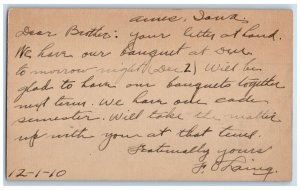 Ames, Iowa.
Dear Brother: Your letter at hand.
We have our banquet at
to morrow night (Dec. 2) Will be
glad to have our banquets together
next term. We have one each
semester. Will take the matter
up with you at that time.
Fraternally yours
12-1-10
F. O Laing.